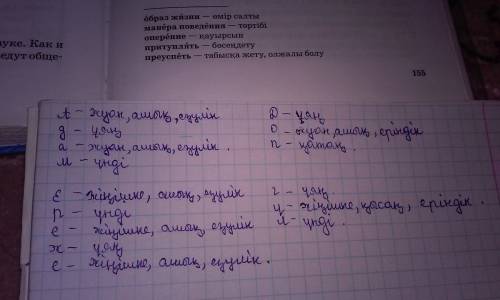 о́браз жи́зни — өмір салты
мане́ра поведе́ния — тәртібі
опере́ние — қауырсын
притупля́ть — бәсеңдету
преуспе́ть — табысқа жету, олжалы болу
155
ауке. Как и
ведут обще-
А – жуан, ашық, езулік
д – ұяң
а – жуан, ашық, езулік.
м – үнді
Д – ұяң
о – жуан, ашық, еріндік
п – қатаң.
Е – жіңішке, ашық, езулік
р – үнді
е – жіңішке, ашық, езулік
ж – ұяң
е – жіңішке, ашық, езулік.
г – ұяң.
ү – жіңішке, қысаң, еріндік.
л – үнді.